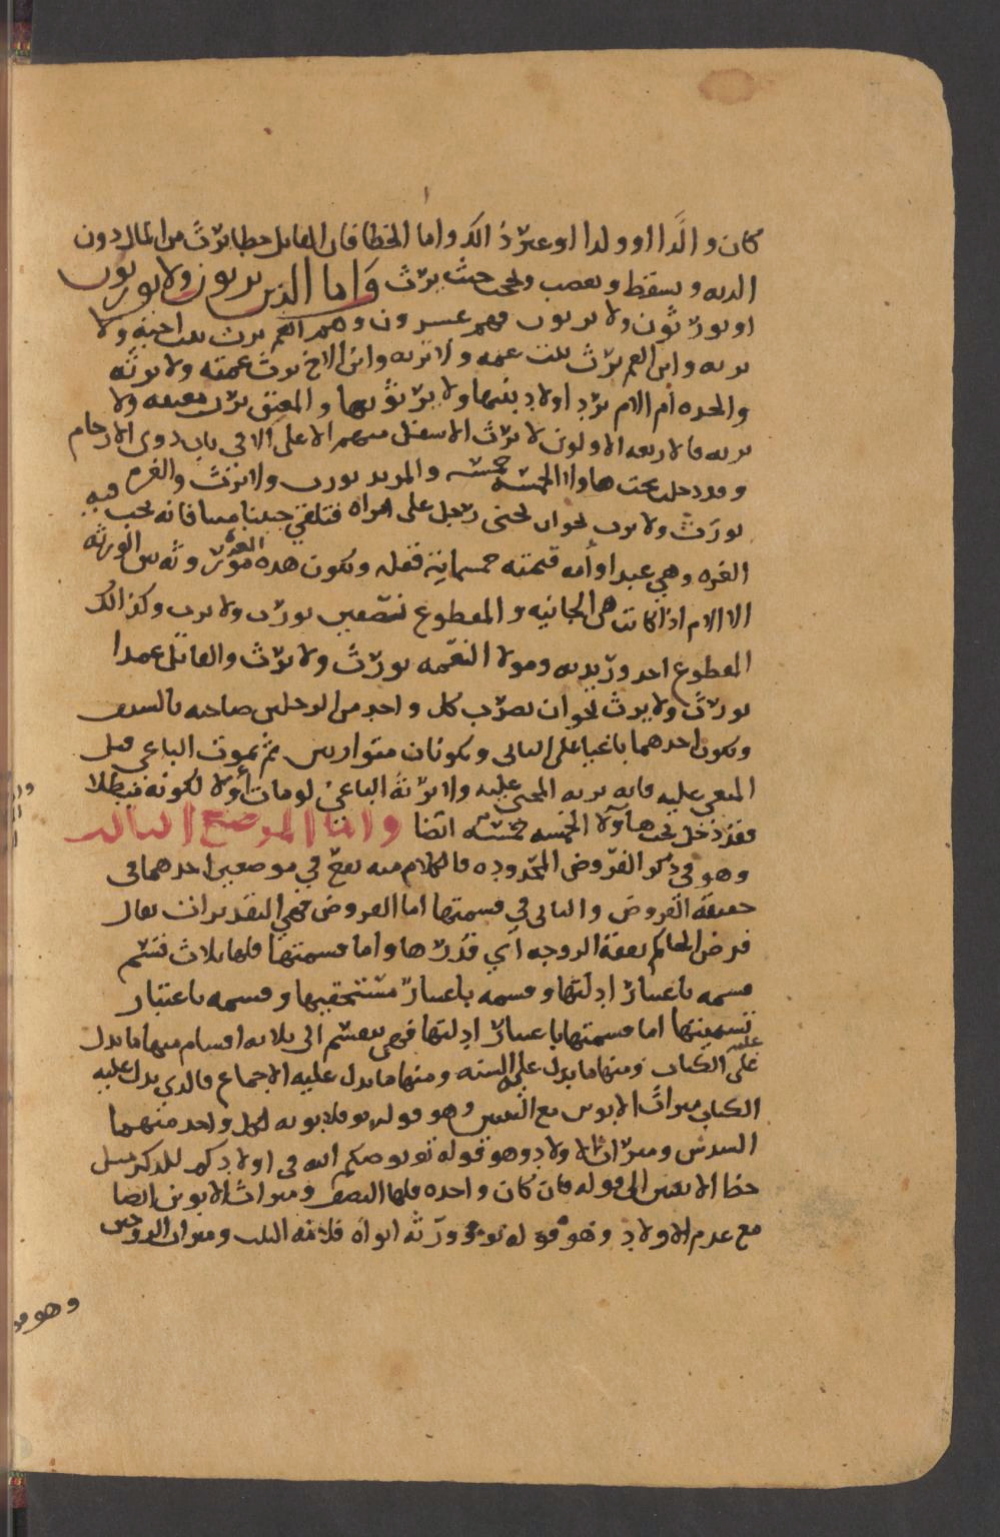 كان والدا او ولدا او غير ذالك واما الخطا فان القاتل خطا يرث من المال دون
الديه ويسقط ويعصب ويحجب حيث يرث واما الذين يرثون ولا يورثون
او يورثون ولا يرثون فهم عشرون وهم العم يرث بنت اخيه ولا
ترثه وابن العم يرث بنت عمه ولا ترثه وابن الاخ يرث عمته ولا ترثه
والجده أم الام ترث اولاد بنتها ولا يرثونها والمعتق يرث معتقه ولا
يرثه فالاربعه الاولون لا يرث الاسفل منهم الاعلى الا في باب ذوى الارحام
وقد دخل تحت هاولا الخمسه خمسه والمرتد يورث ولا يرث والغرم
يورث ولا يرث نحو ان يجنى رجل على امراه فتلقي جنينا ميتا فانه يجب فيه
الغره وهي عبد او أمه قيمته خمسمائة فقله وتكون هذه الغره موروثه بين الورثه
الا الام اذا كانت هى الجانيه والمقطوع نصفين يورث ولا يرث وكذالك
المقطوع احد وريديه ومولا النعمه يورث ولا يرث والقاتل عمدا
يورث ولا يرث نحو ان يضرب كل واحد من الرجلين صاحبه بالسيف
ويكون احدهما باغيا على الثانى ويكونان متوارثين ثم يموت الباغي قبل
المبغي عليه فانه يرثه المجنى عليه ولا يرثه الباغي لو مات أولا لكونه مبطلا
فقد دخل تحت هاولا الخمسه خمسه ايضا واما الموضع الثالث
وهو في ذكر الفروض المحدوده فالكلام منه يقع في موضعين احدهما فى
حقيقه الفروض والثانى في قسمتها اما الفروض فهي التقديرات يقال
فرض الحاكم نفقة الزوجه أي قدرها واما قسمتها فلها ثلاث قسم
قسمه باعتبار ادلتها وقسمه باعتبار مستحقيها وقسمه باعتبار
تسميتها اما قسمتها باعتبار ادلتها فهى تنقسم الى ثلاثه اقسام منها ما يدل
عليه
على الكتاب ومنها ما يدل عليه السنه ومنها ما يدل عليه الاجماع فالذي يدل عليه
الكتاب ميراث الابوين مع البنين وهو قوله تع ولابويه لكل واحد منهما
السدس وميراث الاولاد وهو قوله تع يوصيكم الله فى اولادكم للذكر مثل
حظ الانثيين الى قوله فان كان واحده فلها النصف وميراث الابوين ايضا
مع عدم الاولاد وهو قوله تع وورثه ابواه فلامه الثلث وميراث الزوجين
وهو قو